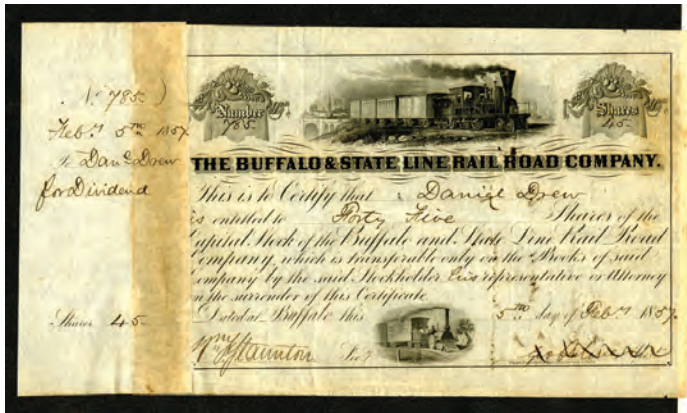 No 785
Feby 5th 1857
To Danl Drew
for Dividend
Shares 45
Number
785
Shares
45
THE BUFFALO & STATE LINE RAIL ROAD COMPANY.
This is to Certify that Daniel Drew
is entitled to Forty Five Shares of the
Capital Stock of the Buffalo and State Line Rail Road
Company, which is transferable only on the Books of said
Company by the said Stockholder his representative or Attorney
on the surrender of this Certificate
Dated at Buffalo this 5th day of Feby 1857.
Staunton Secy